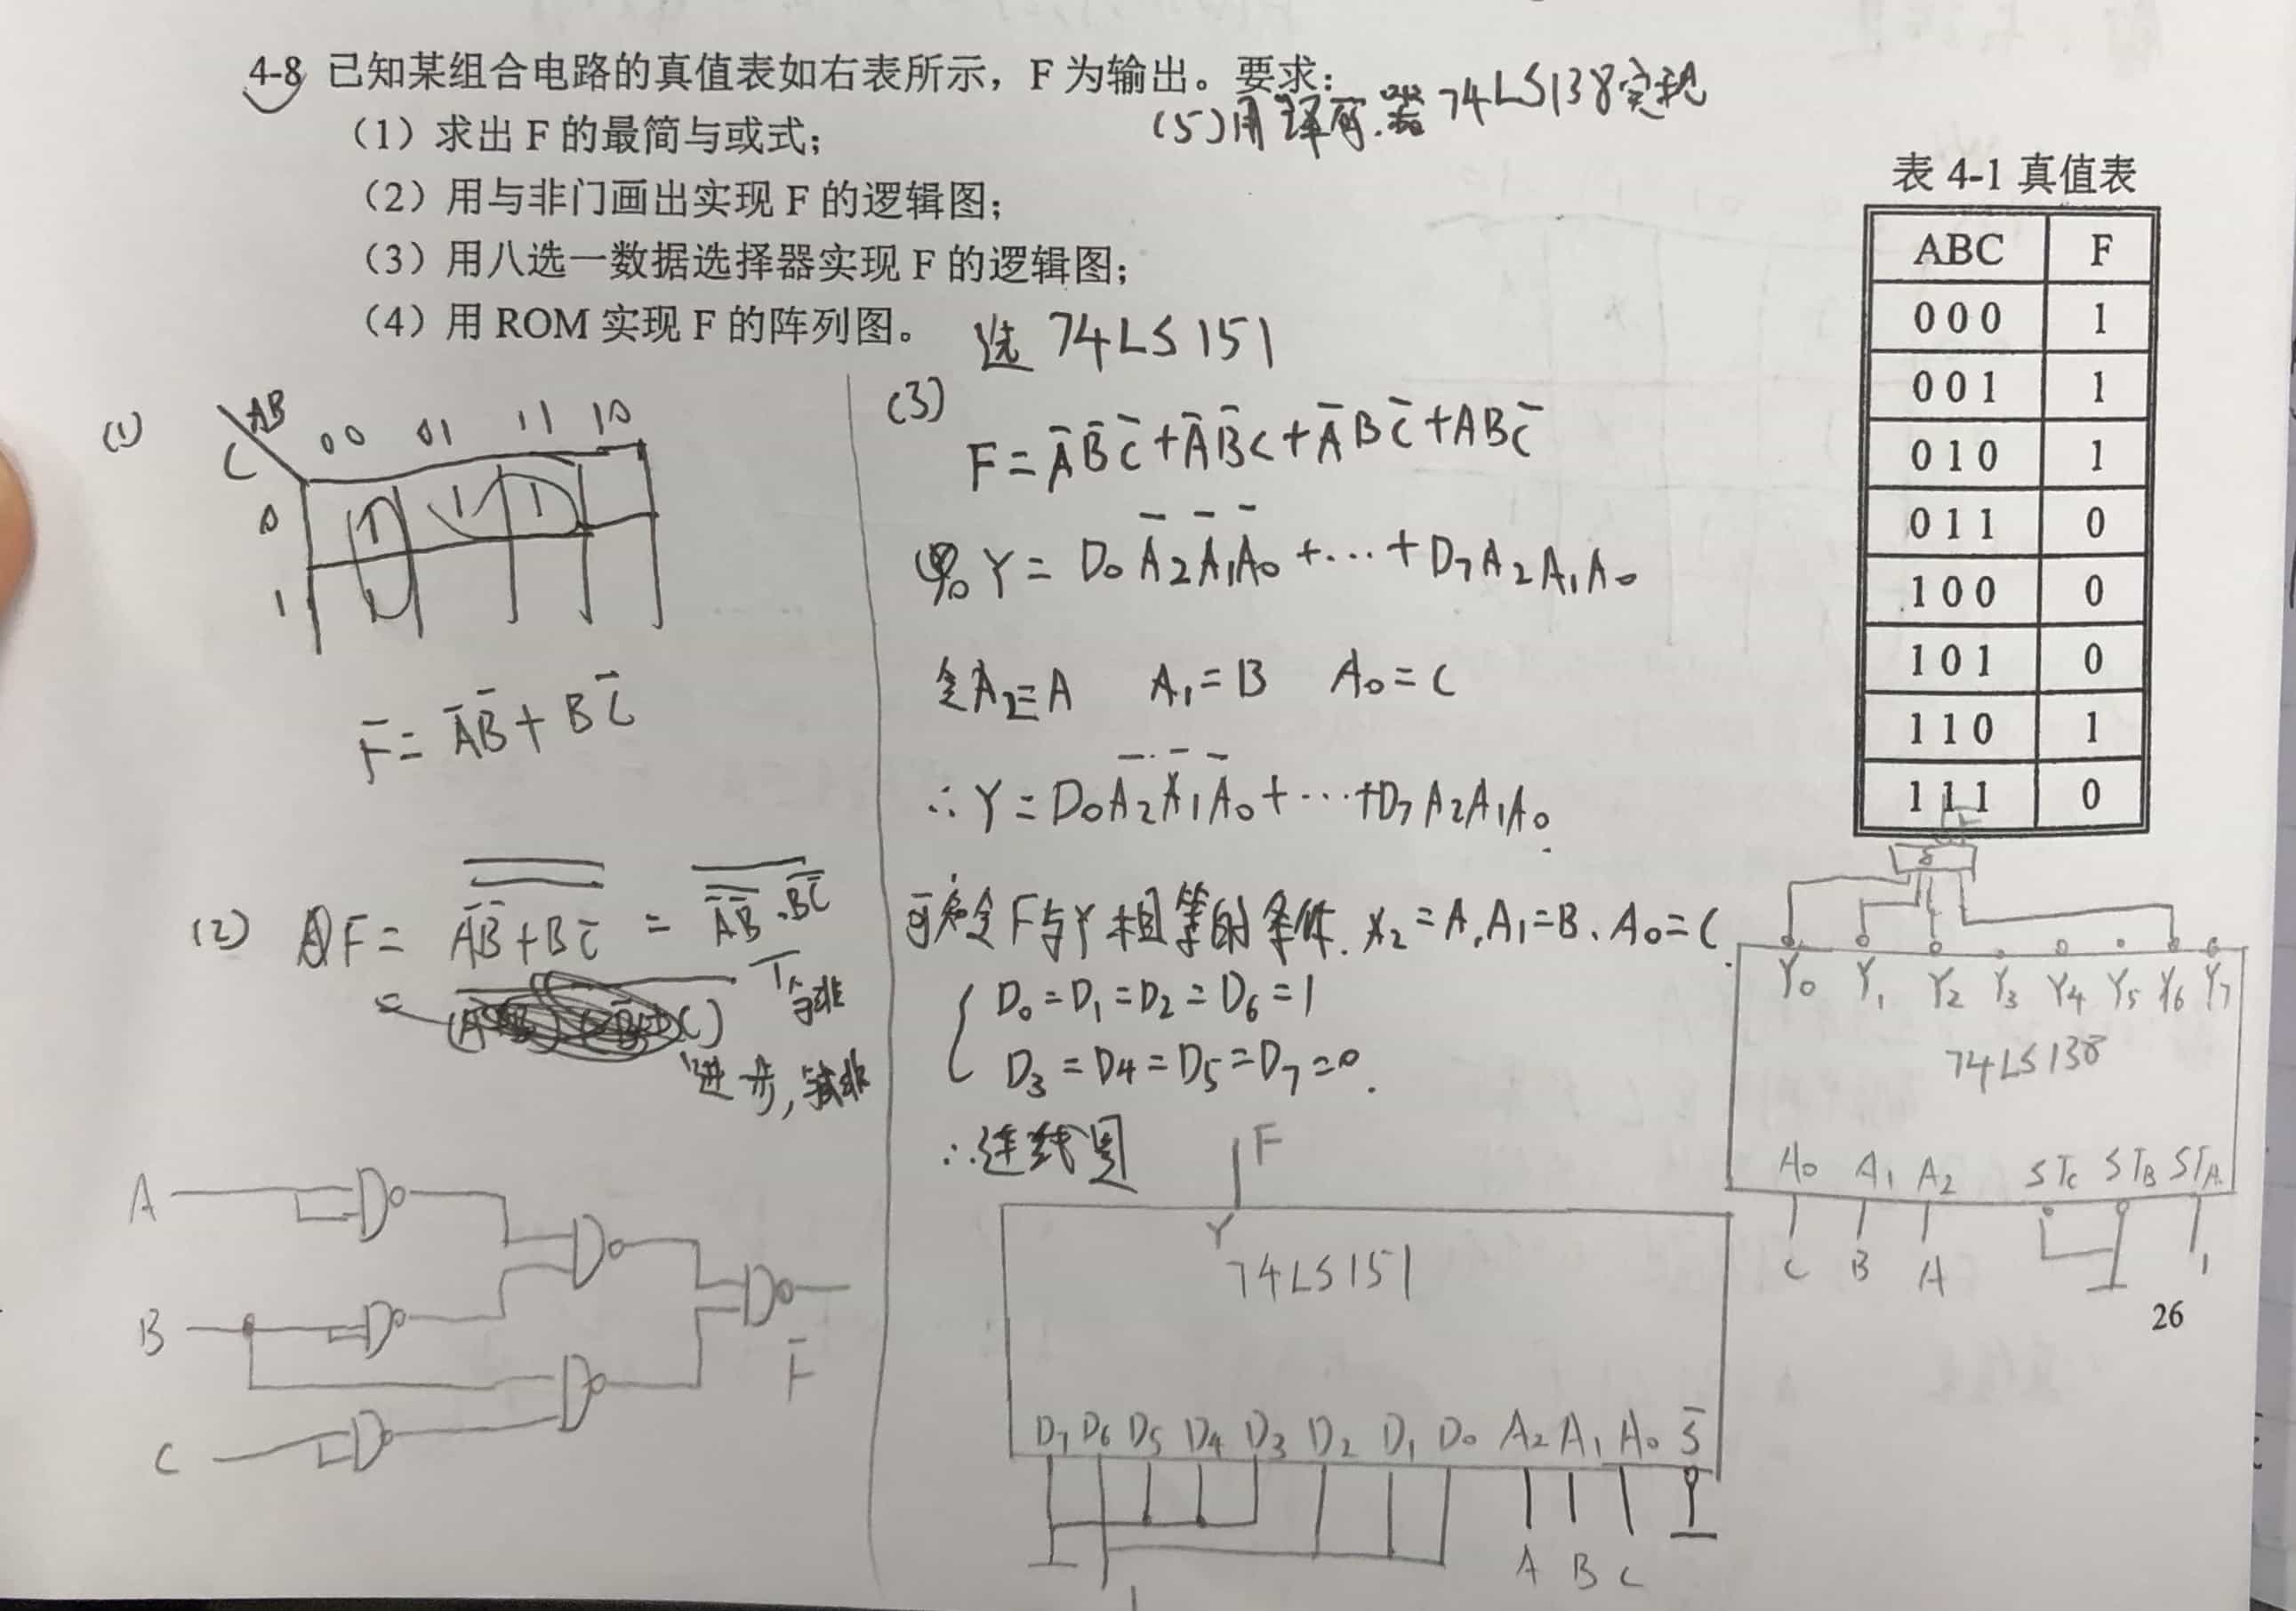 4-8 已知某组合电路的真值表如右表所示，F 为输出。要求：
(5)用译码器74LS138实现
（1）求出 F 的最简与或式；
（2）用与非门画出实现 F 的逻辑图；
（3）用八选一数据选择器实现 F 的逻辑图；
（4）用 ROM 实现 F 的阵列图。
选 74LS151
表 4-1 真值表
ABC F
0 0 0 1
0 0 1 1
0 1 0 1
0 1 1 0
1 0 0 0
1 0 1 0
1 1 0 1
1 1 1 0
(1)
AB
C
00 01 11 10
0 1 1 1
1 1
F̄ = ĀB̄ + BC̄
(2) F = ĀB̄+BC̄ = ĀB̄·BC̄
与非
A
B
C
F̄
(3)
F = ĀB̄C̄ + ĀB̄C + ĀBC̄ + ABC̄
Y = D₀Ā₂Ā₁Ā₀ + ⋯ + D₇A₂A₁A₀
令A₂=A A₁=B A₀=C
∴ Y = D₀Ā₂Ā₁Ā₀ + ⋯ + D₇A₂A₁A₀
F与Y相等的条件. A₂=A, A₁=B、A₀=C.
D₀=D₁=D₂=D₆=1
D₃=D₄=D₅=D₇=0.
∴连线图
F
Y
74LS151
D₇ D₆ D₅ D₄ D₃ D₂ D₁ D₀ A₂ A₁ A₀ S̄
1
A B C
F
&
Y₀ Y₁ Y₂ Y₃ Y₄ Y₅ Y₆ Y₇
74LS138
A₀ A₁ A₂ STc STB STA
C B A 1
26